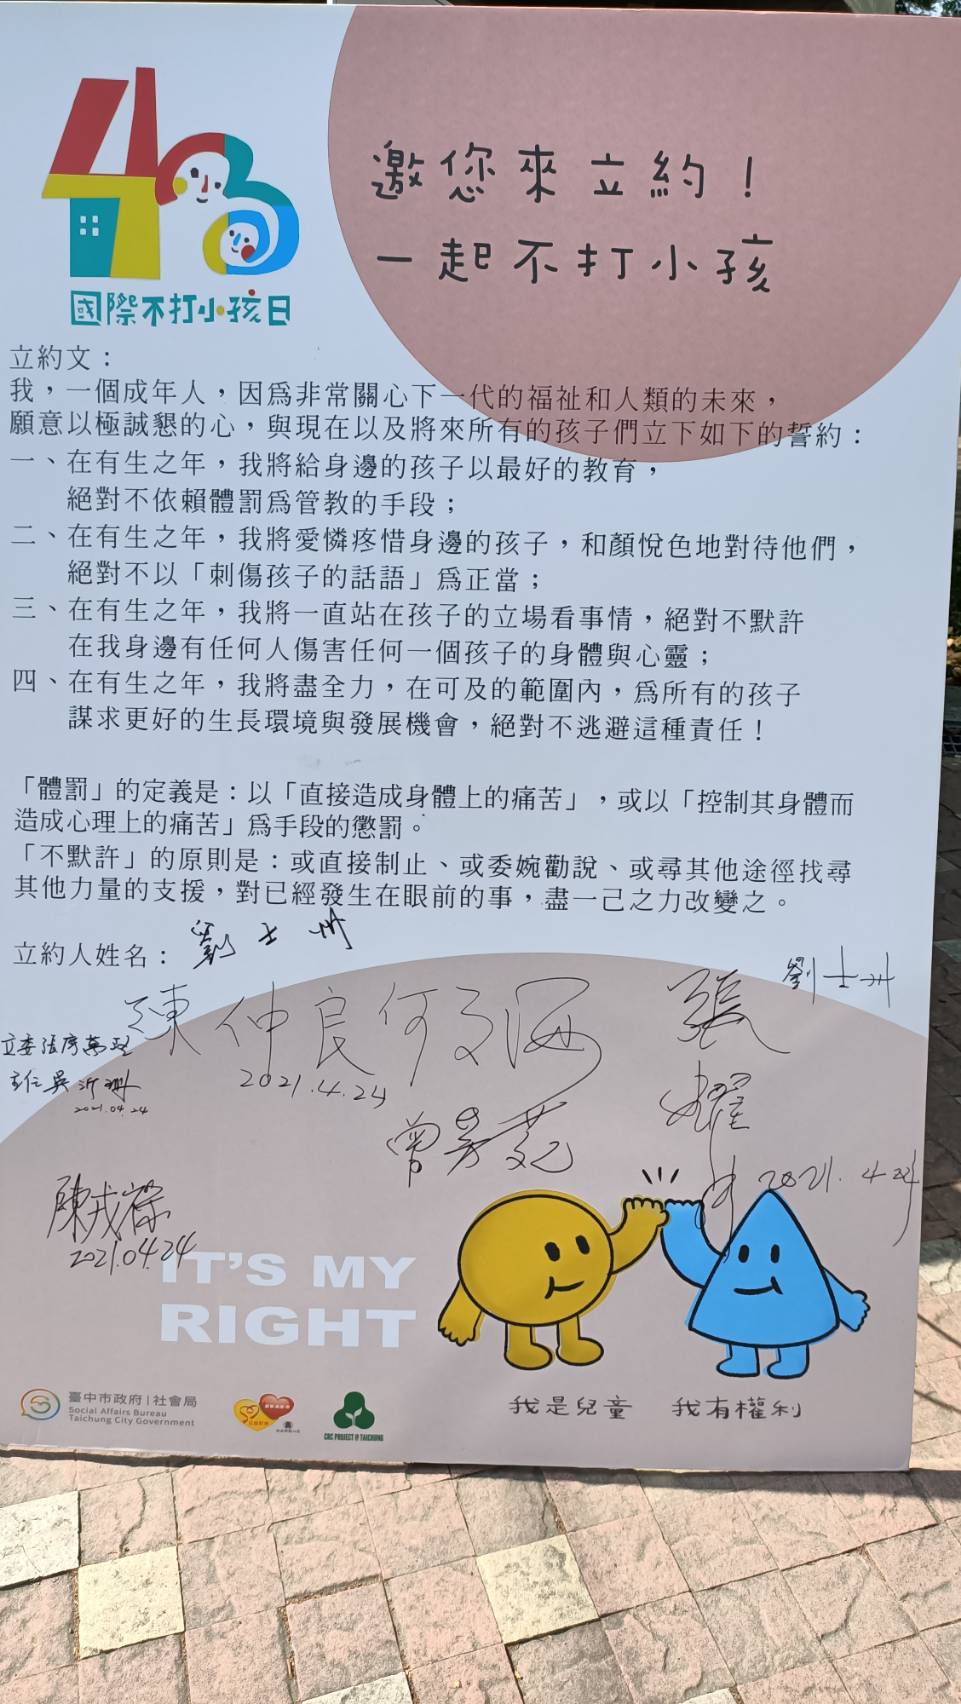 430
國際不打小孩日
邀您來立約！
一起不打小孩
立約文：
我，一個成年人，因為非常關心下一代的福祉和人類的未來，
願意以極誠懇的心，與現在以及將來所有的孩子們立下如下的誓約：
一、在有生之年，我將給身邊的孩子以最好的教育，
絕對不依賴體罰為管教的手段；
二、在有生之年，我將愛憐疼惜身邊的孩子，和顏悅色地對待他們，
絕對不以「刺傷孩子的話語」為正當；
三、在有生之年，我將一直站在孩子的立場看事情，絕對不默許
在我身邊有任何人傷害任何一個孩子的身體與心靈；
四、在有生之年，我將盡全力，在可及的範圍內，為所有的孩子
謀求更好的生長環境與發展機會，絕對不逃避這種責任！
「體罰」的定義是：以「直接造成身體上的痛苦」，或以「控制其身體而
造成心理上的痛苦」為手段的懲罰。
「不默許」的原則是：或直接制止、或委婉勸說、或尋其他途徑找尋
其他力量的支援，對已經發生在眼前的事，盡一己之力改變之。
立約人姓名：劉士州
劉士州
陳仲良 何文海 張
2021.4.24
立委張廖萬堅
主任吳沂珊
2021.04.24
曾芳苑
耀
2021.4.24
陳戎葆
2021.04.24
IT'S MY
RIGHT
我是兒童 我有權利
臺中市政府|社會局
Social Affairs Bureau
Taichung City Government
CRC PROJECT @ TAICHUNG